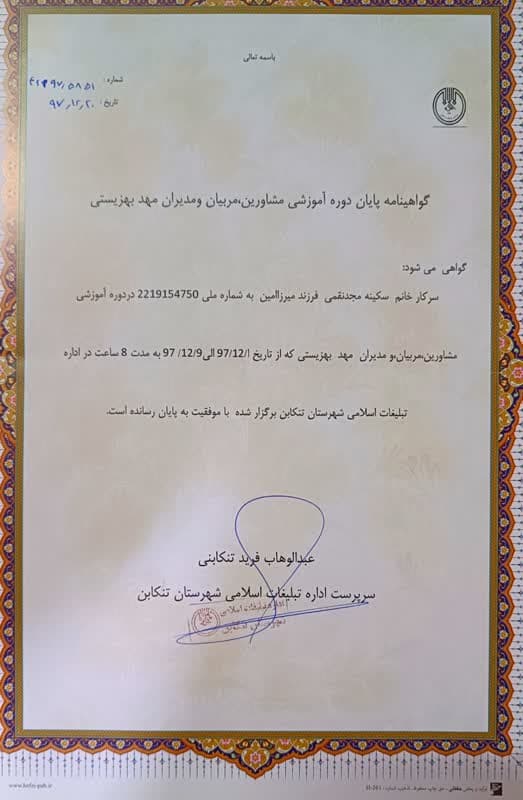 باسمه تعالی
شماره :
تاریخ : ۹۷/۱۲/۲۰
گواهینامه پایان دوره آموزشی مشاورین،مربیان ومدیران مهد بهزیستی
گواهی می شود:
سرکار خانم سکینه مجدنقمی فرزند میرزاامین به شماره ملی 2219154750 دردوره آموزشی
مشاورین،مربیان،و مدیران مهد بهزیستی که از تاریخ 97/12/1 الی 97/12/9 به مدت 8 ساعت در اداره
تبلیغات اسلامی شهرستان تنکابن برگزار شده با موفقیت به پایان رسانده است.
عبدالوهاب فرید تنکابنی
سرپرست اداره تبلیغات اسلامی شهرستان تنکابن
اداره تبلیغات اسلامی
شهرستان تنکابن